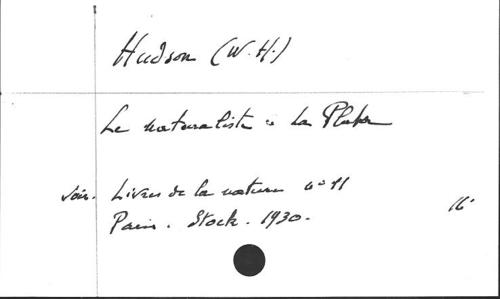 Hudson (W. H.)
Le naturaliste à La Plata
voir. Livres de la nature n° 11
Paris. Stock. 1930.
16°